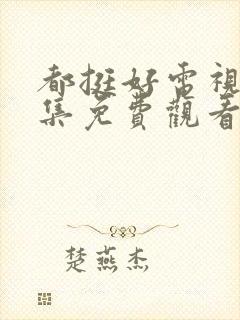 都挺好電視
集免費觀看
楚燕杰